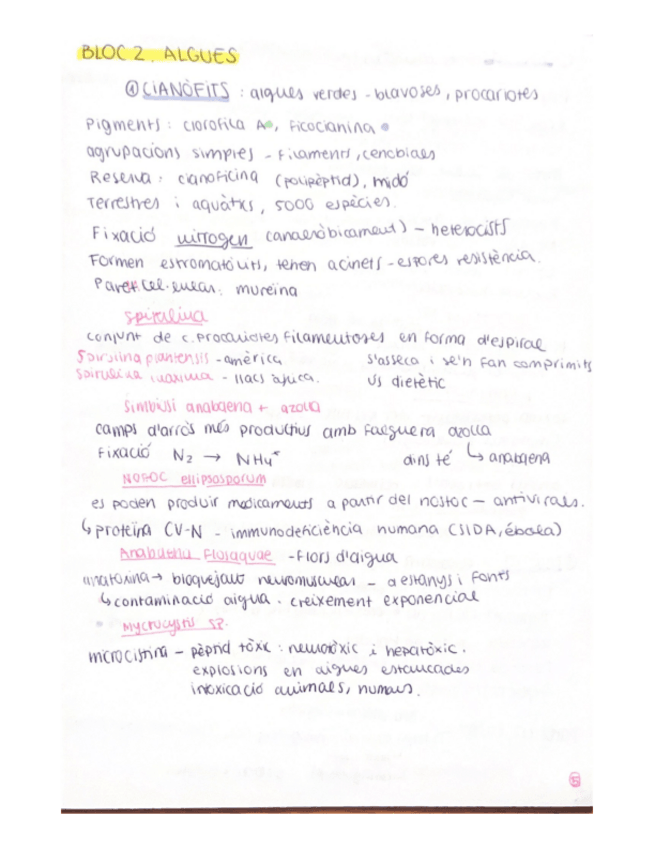 BLOC 2. ALGUES
① CIANÒFITS : algues verdes - blavoses, procariotes
Pigments : clorofila A, ficocianina
agrupacions simples - filaments, cenobiales
Reserva : cianoficina (polipèptid), midó
Terrestres i aquàtics, 5000 espècies.
Fixació nitrogen (anaeròbicament) - heterocists
Formen estromatòlits, tenen acinets - espores resistència.
Paret cel·lular : mureina
spirulina
conjunt de c. procariotes filamentoses en forma d'espiral
Spirulina plantensis - amèrica
s'asseca i se'n fan comprimits
spirulina maxima - llacs àfrica.
ús dietètic
simbiosi anabaena + azolla
camps d'arròs més productius amb falguera azolla
Fixació N₂ → NH₄⁺
dins té ↳ anabaena
NOSOC ellipsosporum
es poden produir medicaments a partir del nostoc - antivirals.
↳ proteïna CV-N - immunodeficiència humana (SIDA, ébola)
Anabaena Flosaquae - Flors d'aigua
anatoxina → bloquejant neuromuscular - a estanys i fonts
↳ contaminació aigua. creixement exponencial
Mycrocystis sp.
microcistina - pèptid tòxic : neurotòxic i hepatòxic.
explosions en aigues estancades
intoxicació animals, humans.